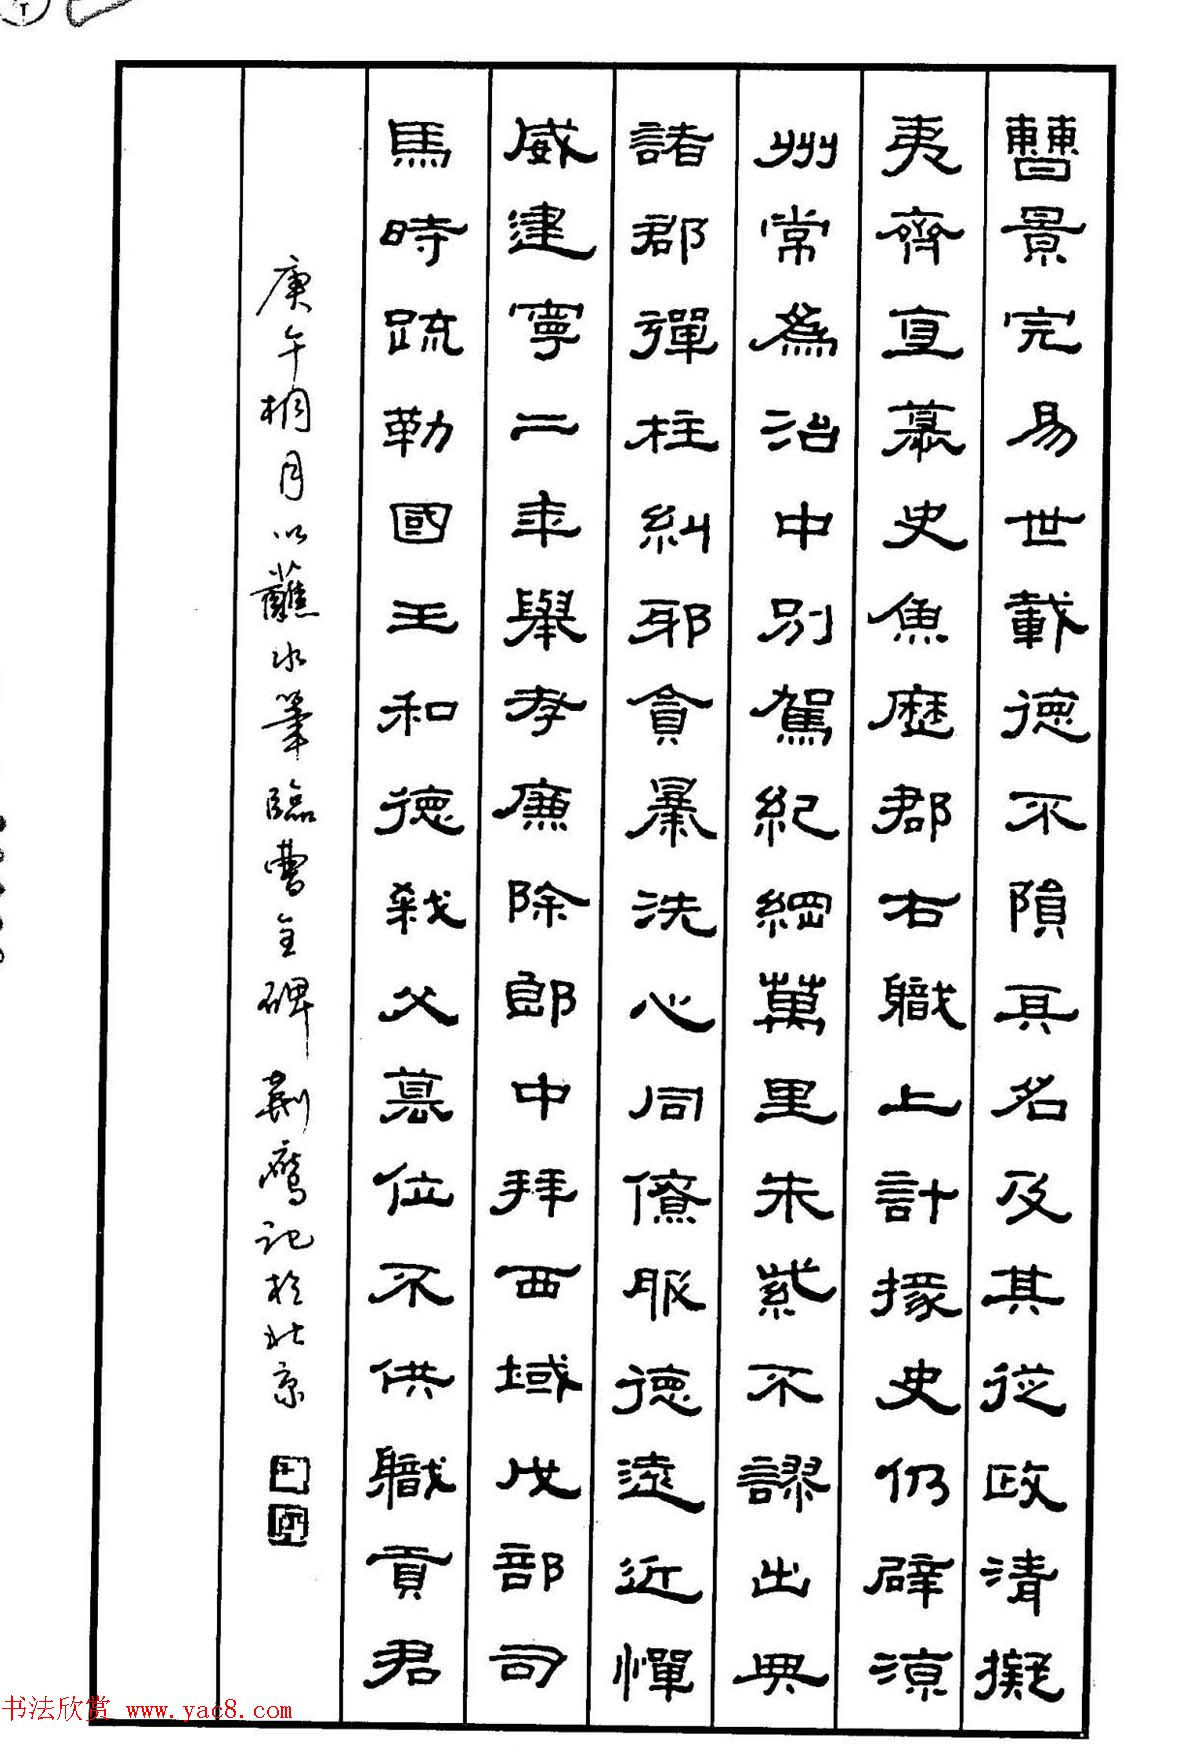 曹景完易世載德不隕其名及其從政清擬
夷齊直慕史魚歷郡右職上計掾史仍辟涼
州常為治中別駕紀綱萬里朱紫不謬出典
諸郡彈柱糾邪貪暴洗心同僚服德遠近憚
威建寧二年舉孝廉除郎中拜西域戊部司
馬時疏勒國王和德弒父篡位不供職貢君
庚午桐月以蘸水筆臨曹全碑荊鷹記於北京
书法欣赏 www.yac8.com